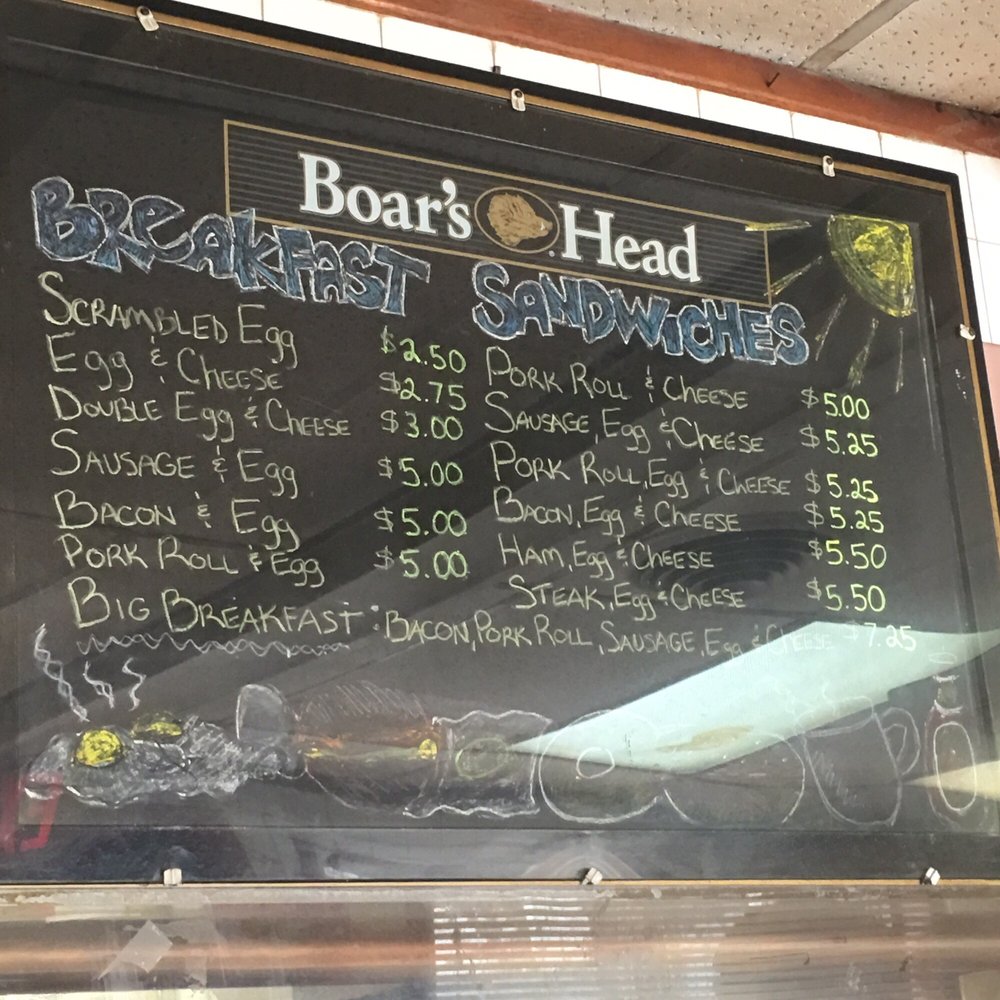 Boar's Head
BREAKFAST SANDWICHES
SCRAMBLED Egg $2.50
Egg & CHEESE $2.75
DOUBLE Egg & CHEESE $3.00
SAUSAGE & Egg $5.00
BACON & Egg $5.00
PORK ROLL & Egg $5.00
PORK ROLL & CHEESE $5.00
SAUSAGE, Egg & CHEESE $5.25
PORK ROLL, Egg & CHEESE $5.25
BACON, Egg & CHEESE $5.25
HAM, Egg & CHEESE $5.50
STEAK, Egg & CHEESE $5.50
BIG BREAKFAST: BACON, PORK ROLL, SAUSAGE, Egg & CHEESE $7.25